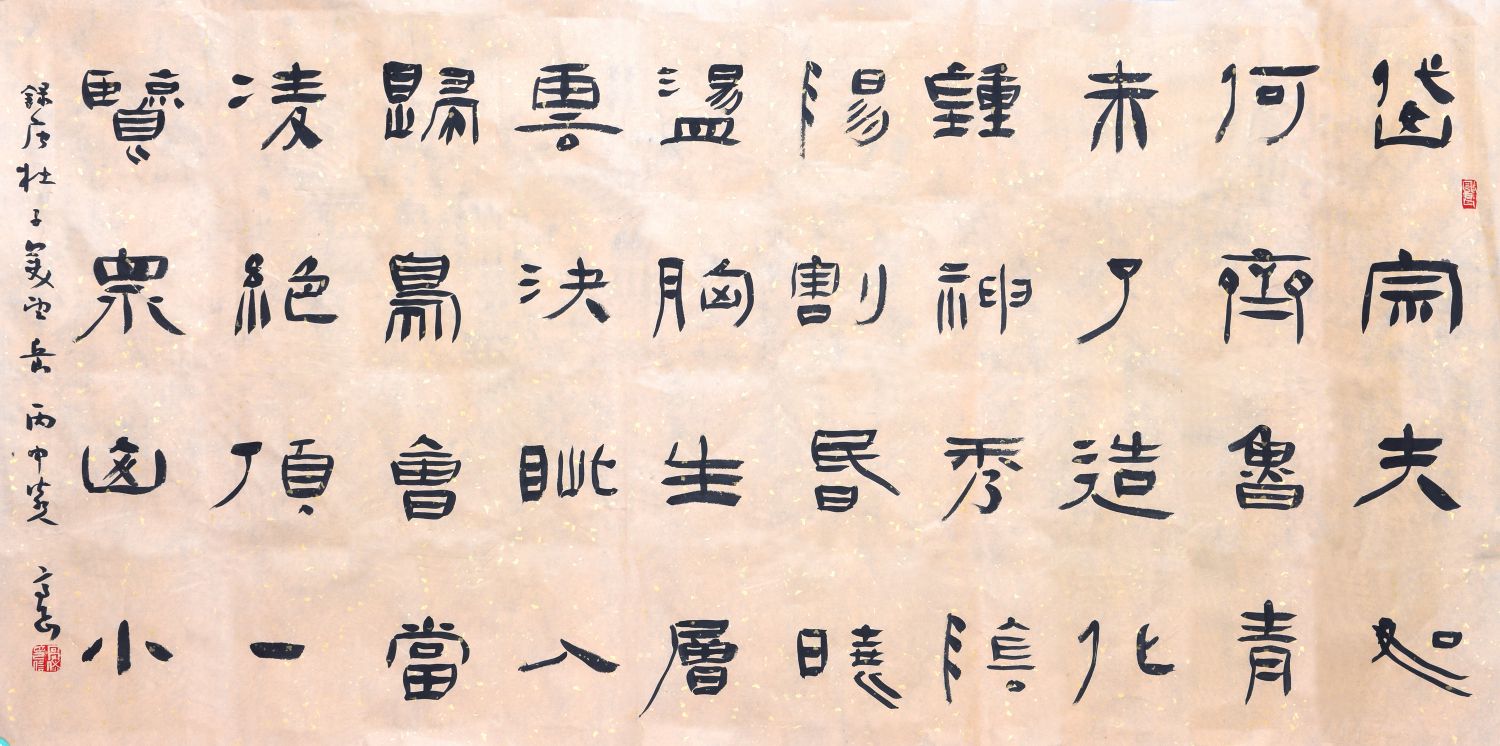 岱宗夫如
何齊魯青
未了造化
鍾神秀陰
陽割昬曉
盪胸生層
雲決眦入
歸鳥會當
凌絕頂一
覽眾山小
錄唐杜子美望岳 丙申